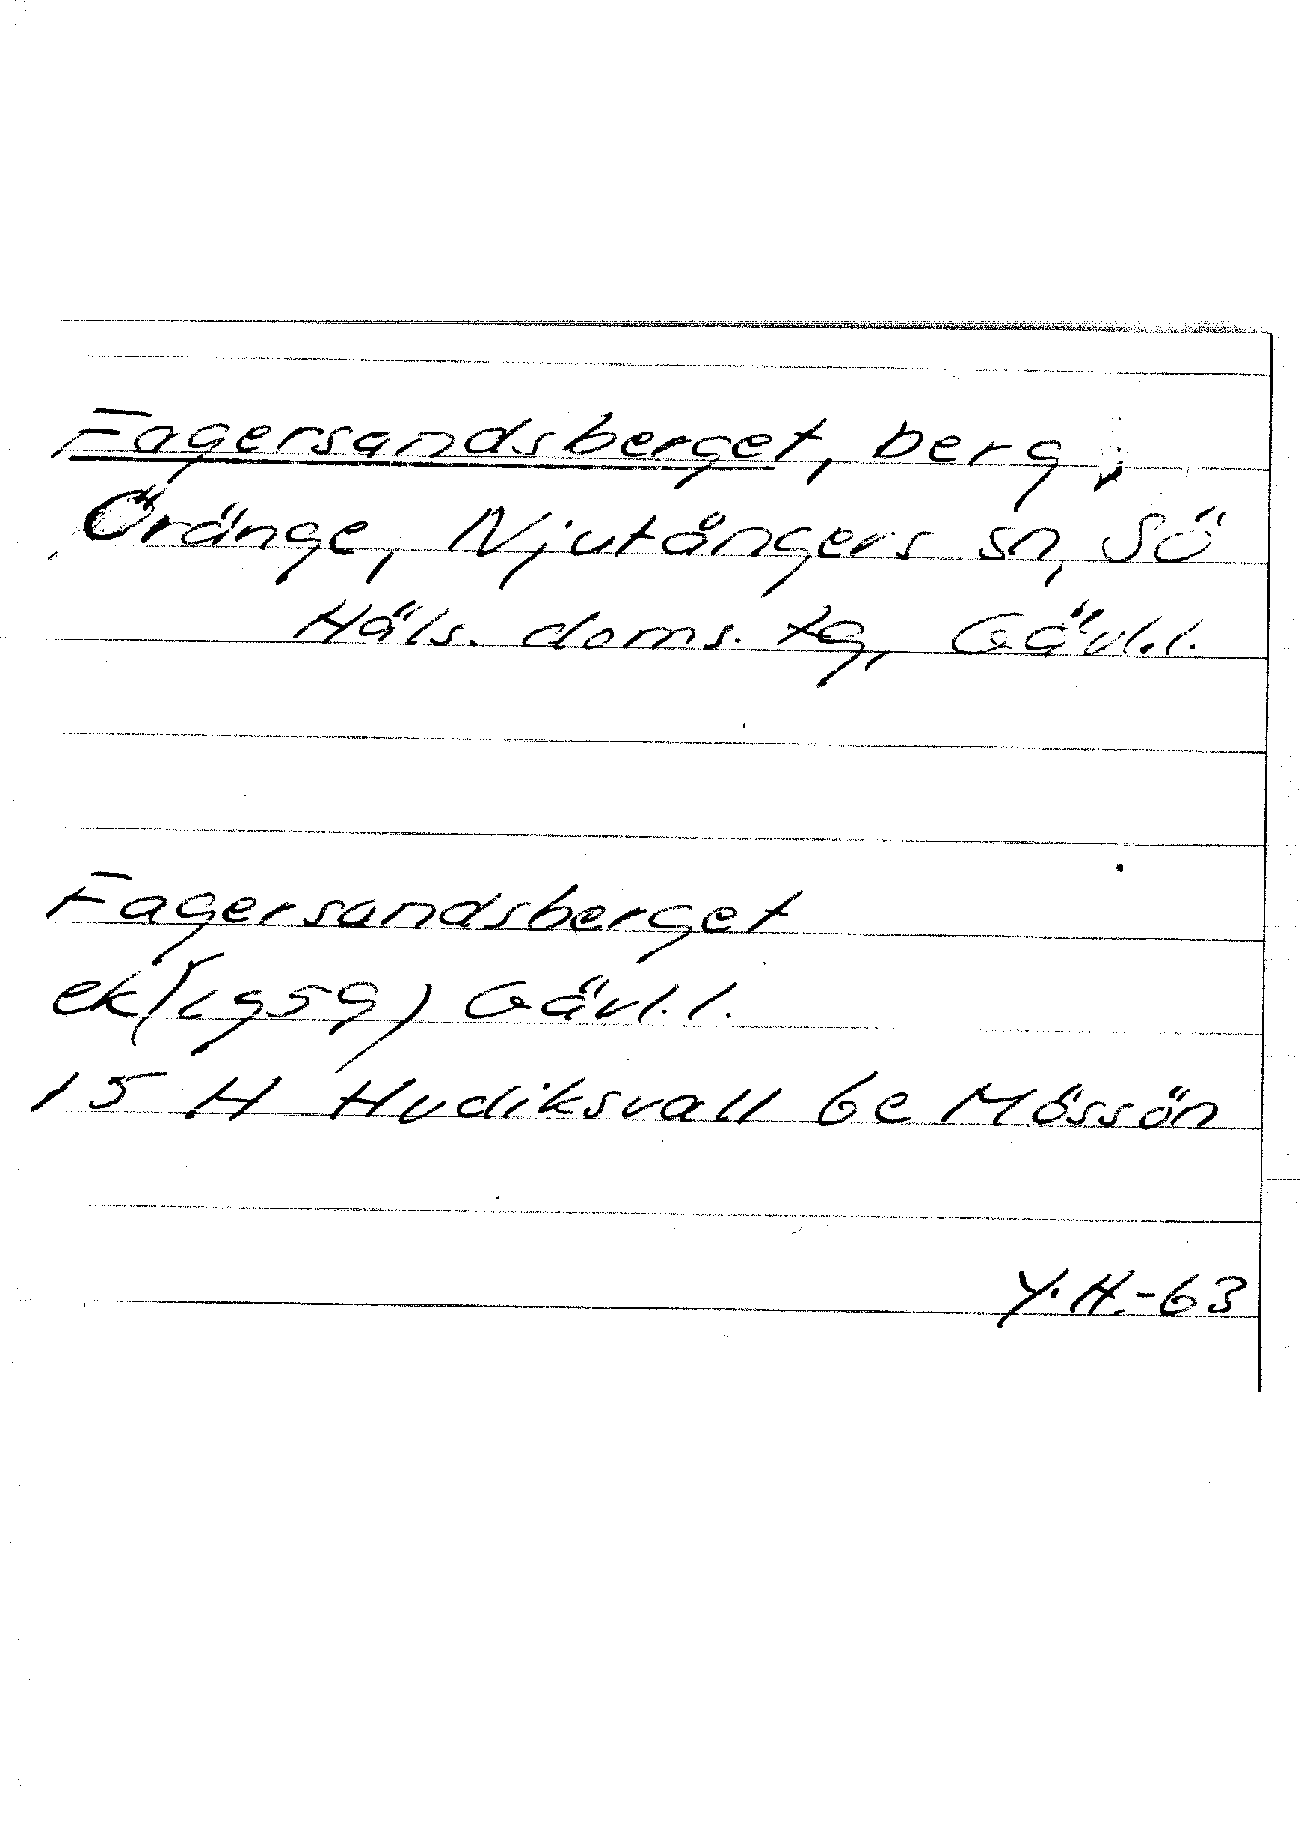 Fagersandsberget, berg,
Öränge, Njutångers sn, Sö
Häls. doms. tg, Gävl.l.
Fagersandsberget
ek (1959) Gävl.l.
15 H Hudiksvall 6e Mössön
Y.H.-63